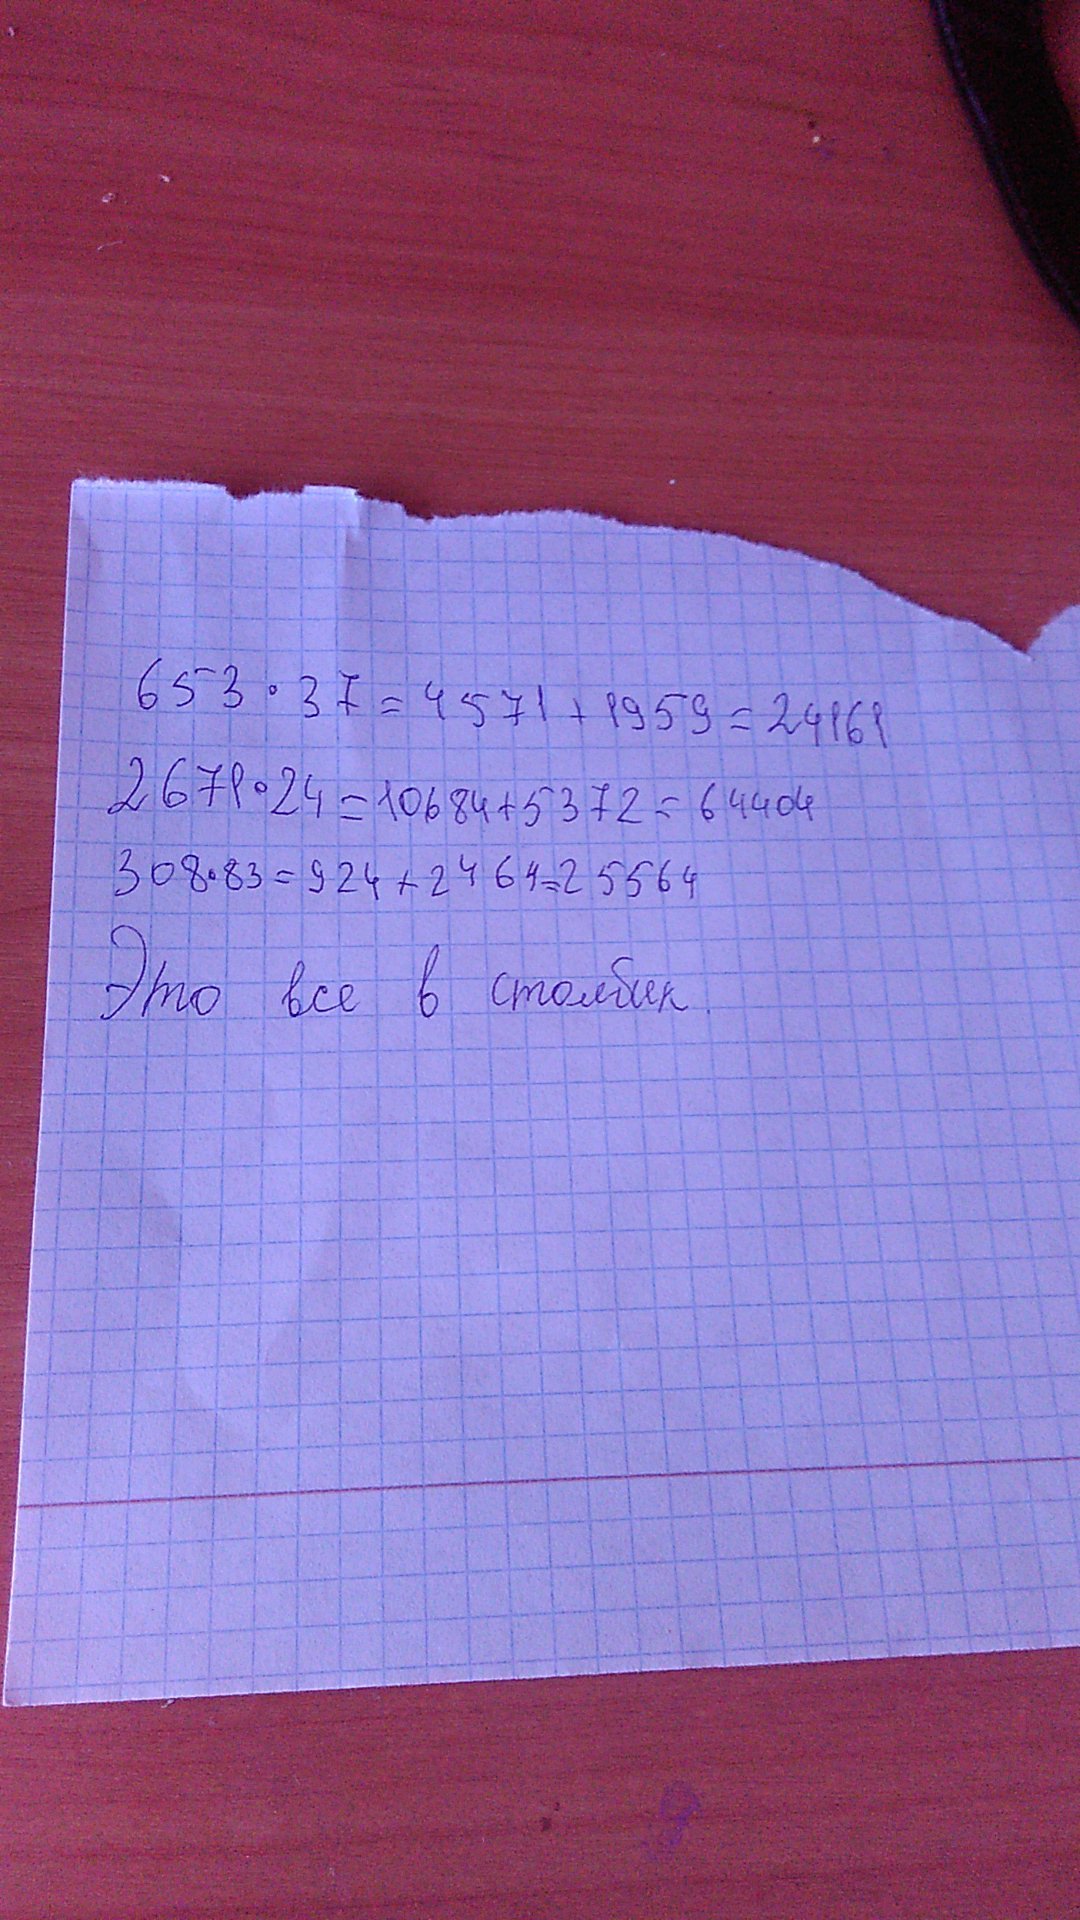 653 · 37 = 4571 + 1959 = 24161
2671 · 24 = 10684 + 5372 = 64404
308 · 83 = 924 + 2464 = 25564
Это все в столбик.